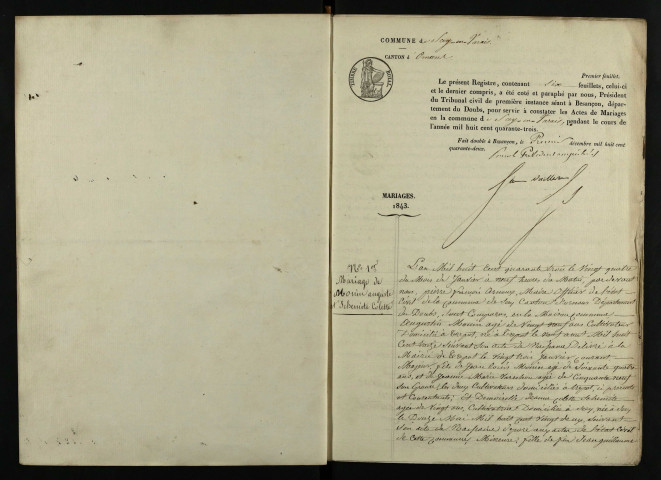 COMMUNE de Scey-en-Varais
CANTON d Ornans
TIMBRE ROYAL
Premier feuillet.
Le présent Registre, contenant six feuillets, celui-ci
et le dernier compris, a été coté et paraphé par nous, Président
du Tribunal civil de première instance séant à Besançon, dépar-
tement du Doubs, pour servir à constater les Actes de Mariages
en la commune d e Scey-en-Varais, pendant le cours de
l'année mil huit cent quarante-trois.
Fait double à Besançon, le Premier décembre mil huit cent
quarante-deux.
Pour le Président empêché
MARIAGES.
1843.
N° 1er
Mariage de
Monin auguste
et Colette
L'an Mil huit Cent quarante trois le Vingt quatre
du Mois de Janvier à neuf heures du Matin, par devant
nous, pierre françois Maire Officier de l'état
Civil de la Commune de Scey Canton d'ornans Département
du Doubs, Sont Comparus en la Maison commune
Augustin Monin agé de Vingt neuf ans Cultivateur
Domicilié à né à le neuf aout Mil huit
Cent treize Suivant Son acte de Naissance Délivré à la
Mairie de le Vingt trois Janvier Courant
Majeur, fils de Jean louis Monin agé de Soixante quatre
ans, et de Jeanne Marie agée de Cinquante neuf
tous Deux Cultivateurs domiciliés à présents
et Consentants; Et Demoiselle Jeanne Colette
agée de Vingt ans, Cultivatrice Domiciliée à Scey, née à Scey
le Douze Mai Mil huit Cent Vingt deux, Suivant
Son acte de Naissance Déposé aux actes de l'état Civil
de Cette Commune, Mineure; fille de feu Jean guillaume